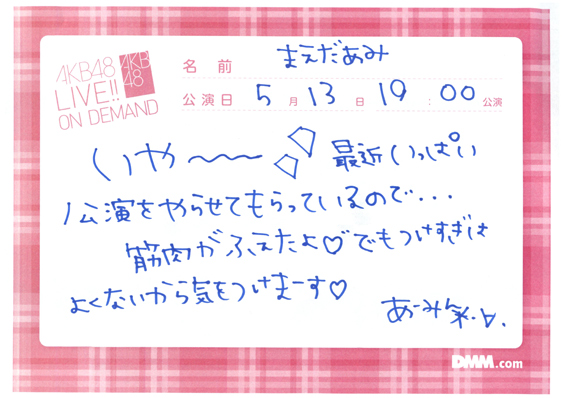 AKB48
LIVE!!
ON DEMAND
AKB
48
名前 まえだあみ
公演日 5月13日 19:00公演
いや〜〜 最近いっぱい
公演をやらせてもらっているので・・・
筋肉がふえたよ♡でもつけすぎは
よくないから気をつけまーす♡
あーみん
DMM.com